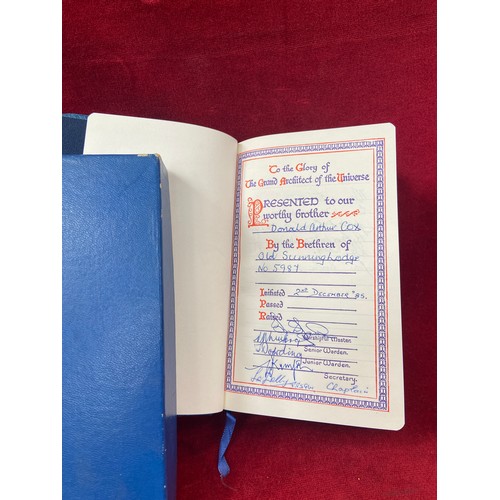 To the Glory of
The Grand Architect of the Universe
PRESENTED to our
worthy brother
Donald Arthur Cox
By the Brethren of
Old Sunninghodge
No 5987
Initiated 2nd December '85.
Passed
Raised
Worshipful Master.
Senior Warden.
Junior Warden.
Secretary.
Chaplain